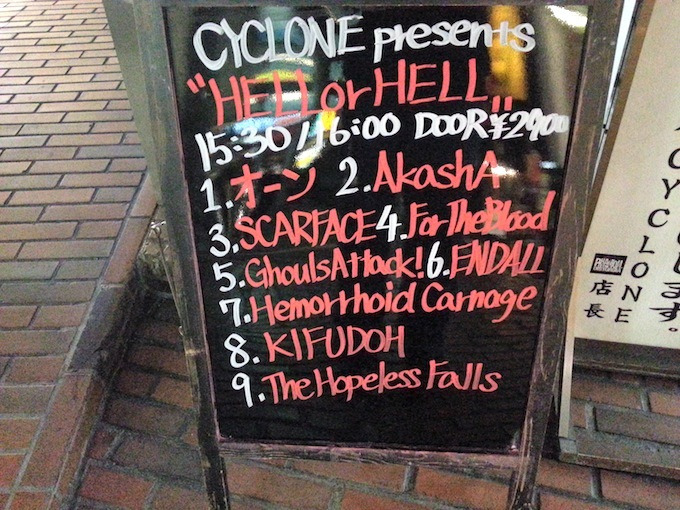 CYCLONE presents
"HELL or HELL"
15:30/16:00 DOOR ¥2900
1. オーン 2. AkashA
3. SCARFACE 4. ForTheBlood
5. GhoulsAttack! 6. ENDALL
7. Hemorrhoid Carnage
8. KIFUDOH
9. The Hopeless Falls
します。
CYCLONE
店長